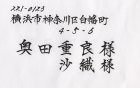 221-0123
横浜市神奈川区白幡町
4-5-6
奥田重良様
沙織様